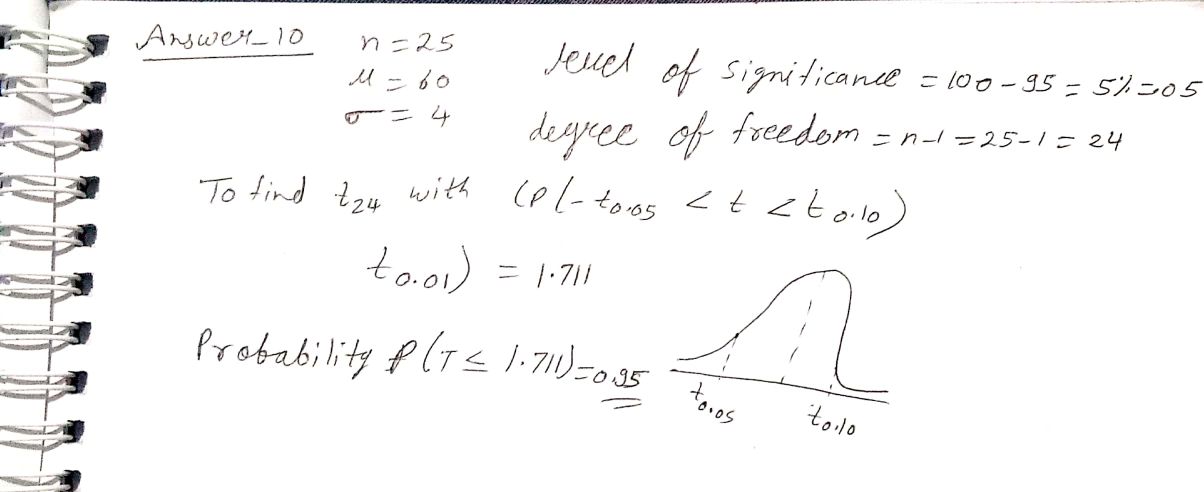 Answer_10
n = 25
μ = 60
σ = 4
level of significance = 100 - 95 = 5% = 05
degree of freedom = n-1 = 25-1 = 24
To find t24 with (P(-t0.05 < t < t0.10)
t0.01) = 1.711
Probability P(T ≤ 1.711) = 0.95
t0.05
t0.10